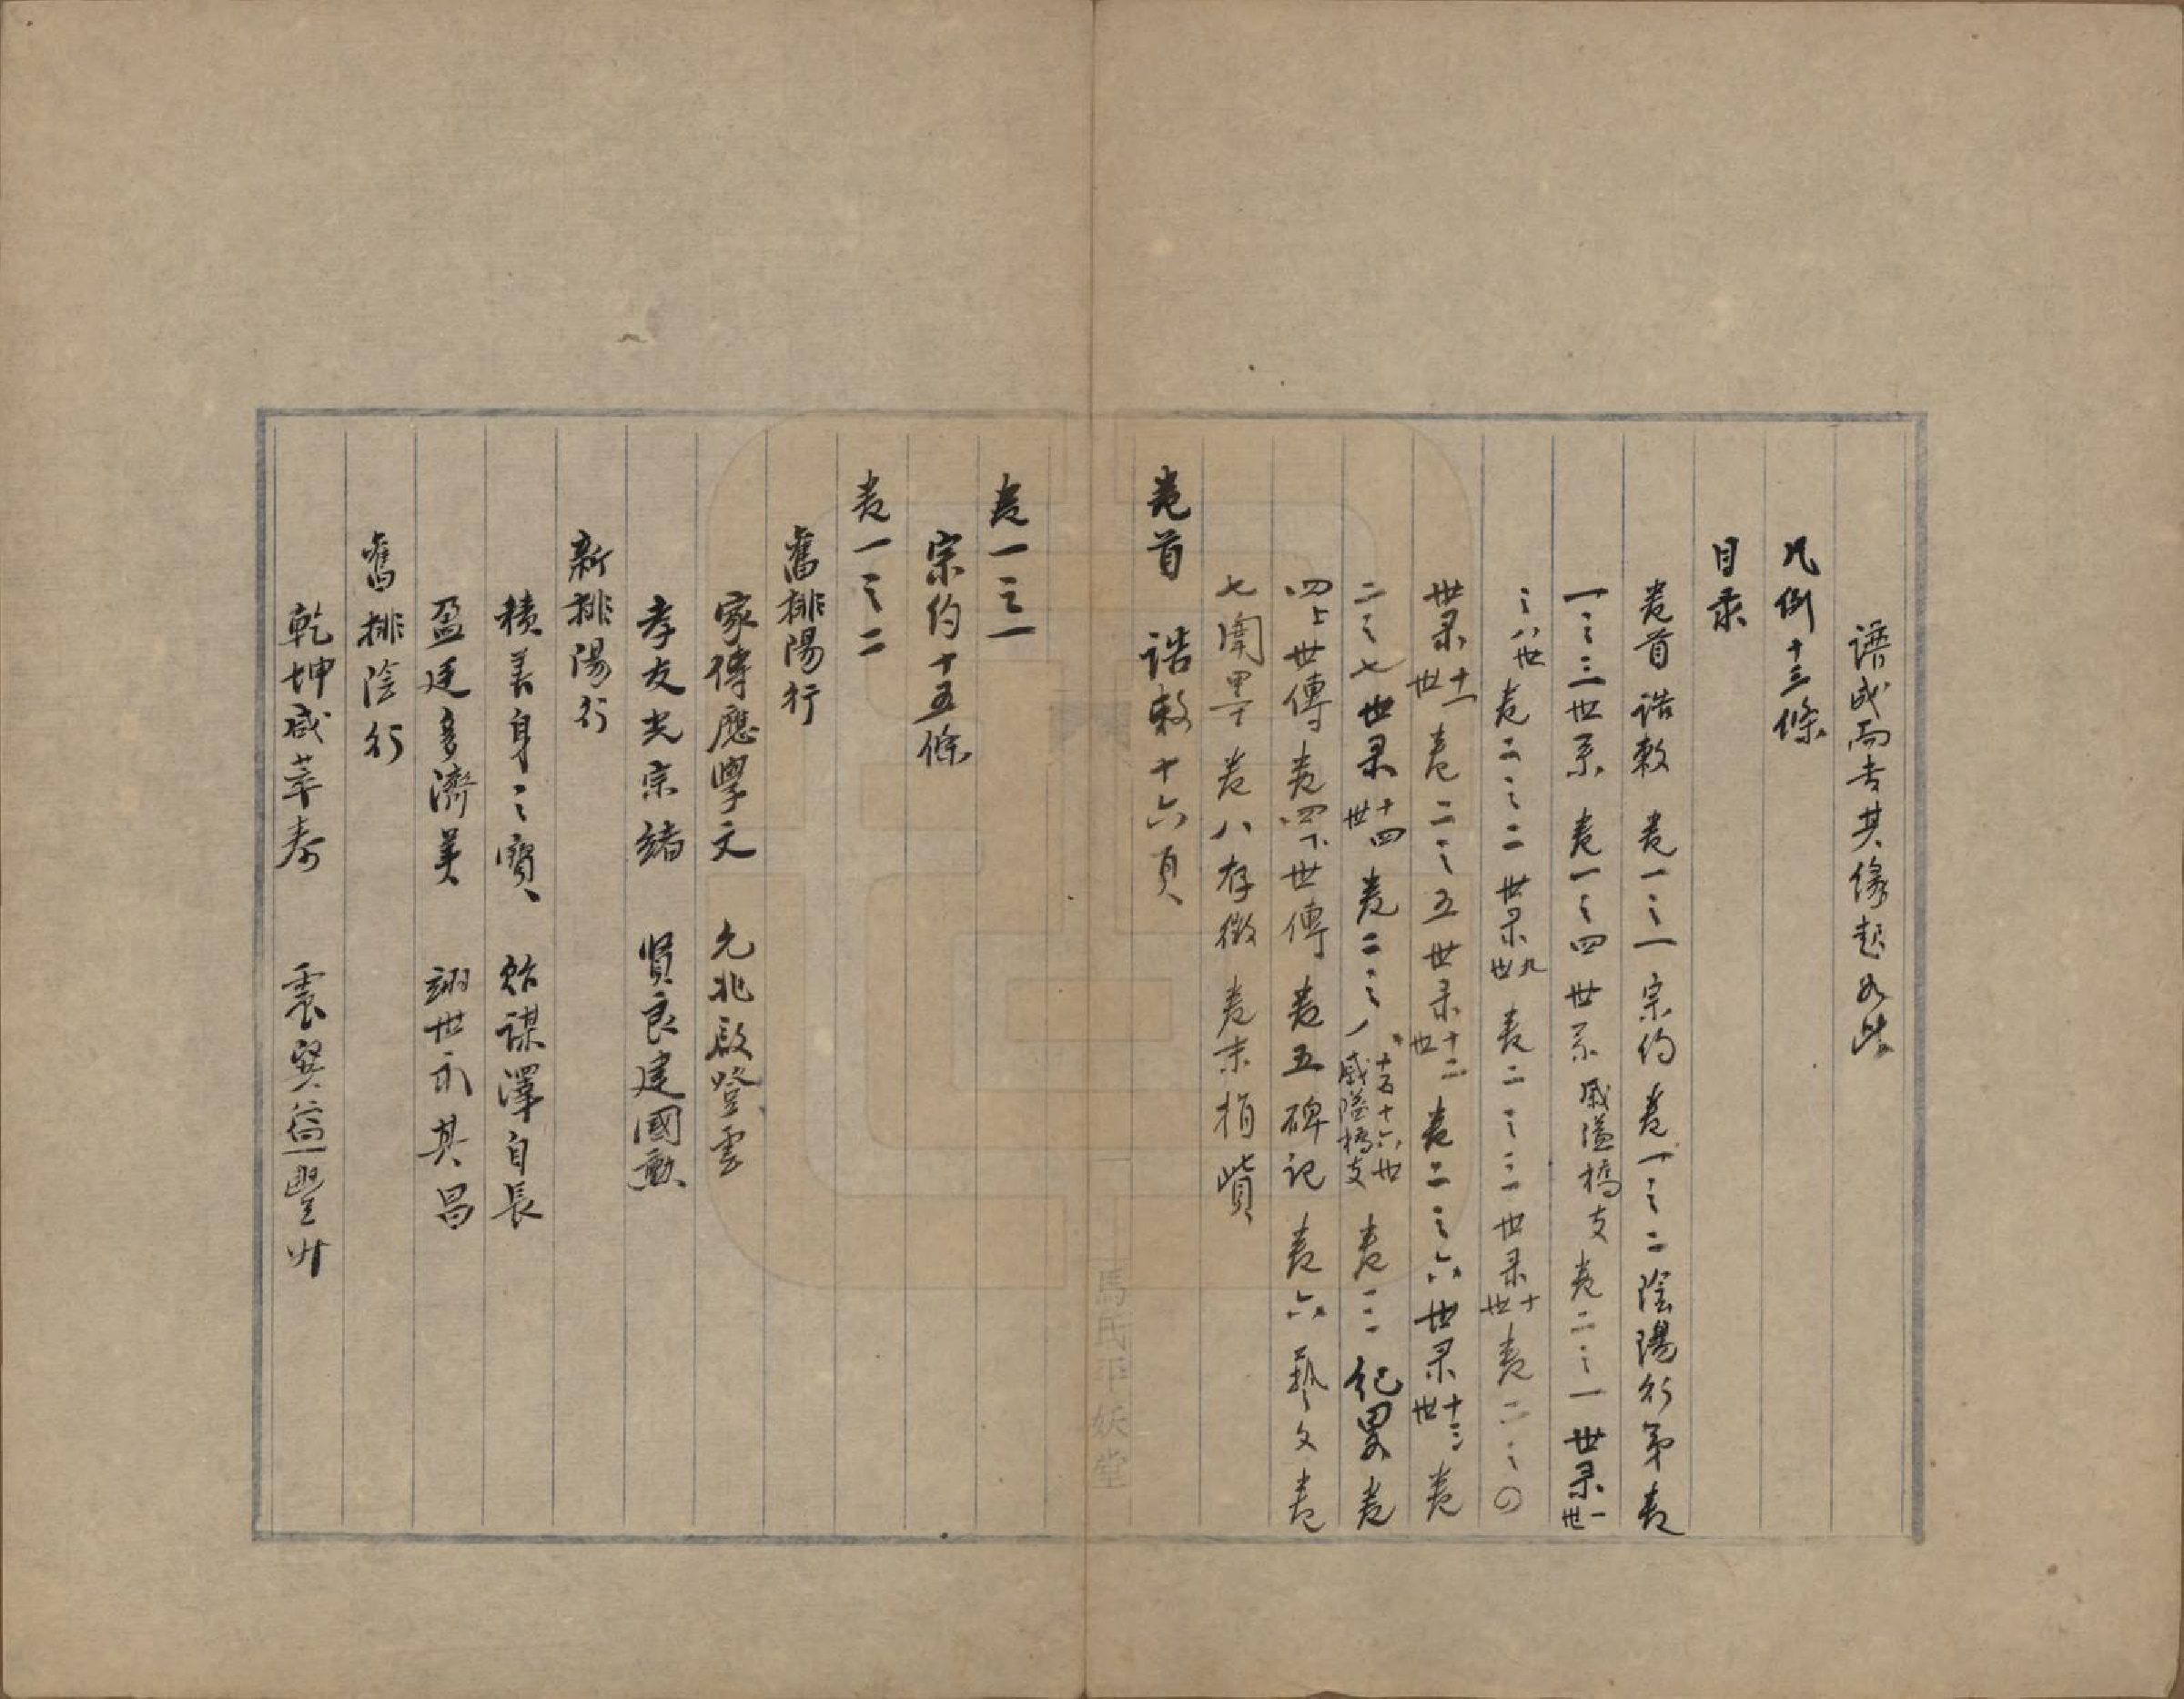 譜成而書其緣起如此
凡例十三條
目录
卷首誥敕 卷一之一宗約 卷一之二陰陽行第 卷
一之三世系 卷一之四世系戚隘橋支 卷二之一世录一世
之八世 卷二之二世录九世 卷二之三世录十世 卷二之四
世录十一世 卷二之五世录十二世 卷二之六世录十三世 卷
二之七世录十四世 卷二之八十五十六世戚隘橋支 卷三紀略 卷
四上世傳 卷四下世傳 卷五碑記 卷六藝文 卷
七闈墨 卷八存徵 卷末捐貲
卷首 誥敕十六頁
馬氏平妖堂
卷一之一
宗約十五條
卷一之二
舊排陽行
家傳應學文 允兆啟登雲
孝友光宗緒 賢良建國勳
新排陽行
積善身之寶 貽謀澤自長
盈廷多濟美 詡世永其昌
舊排陰行
乾坤咸萃泰 震巽益豐升